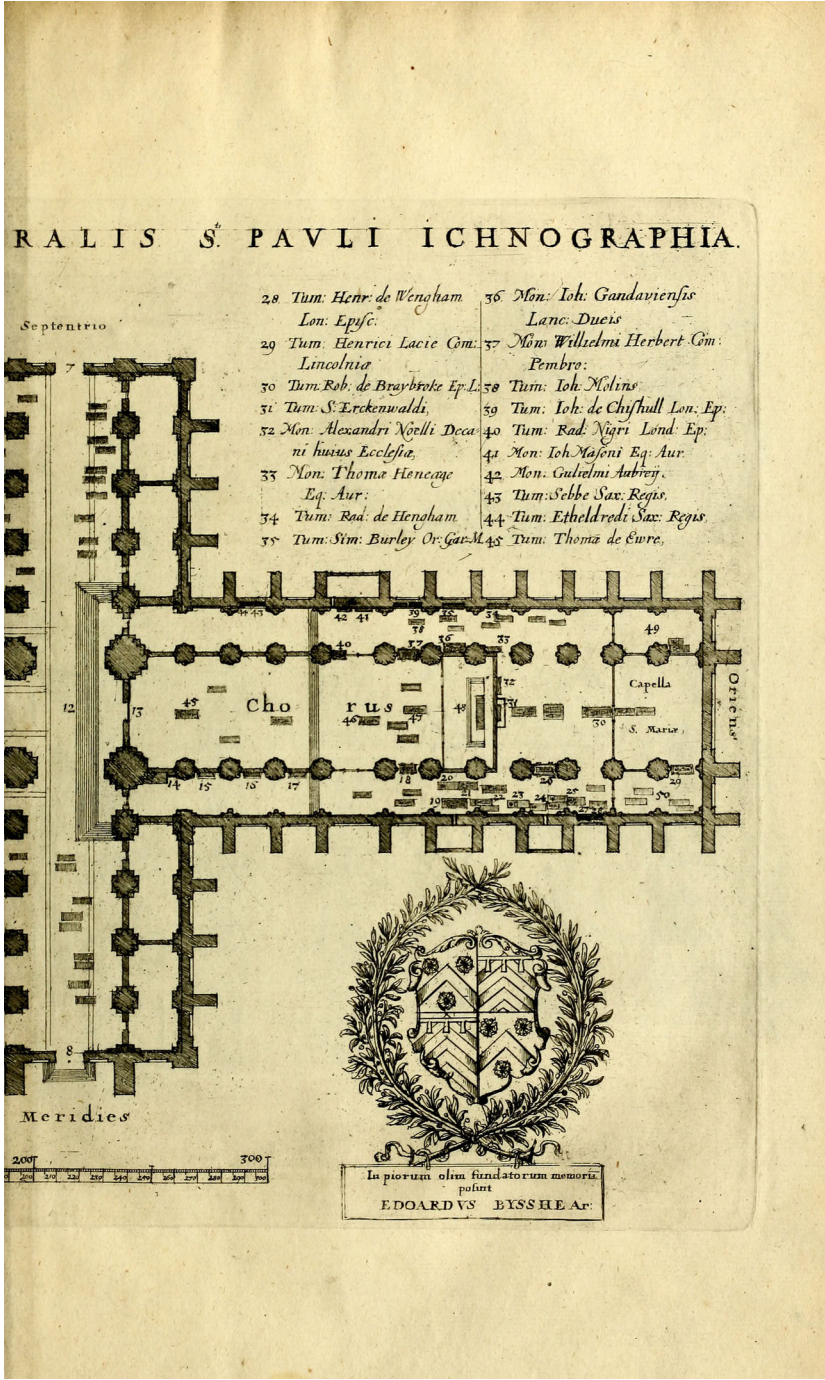 RALIS S.t PAVLI ICHNOGRAPHIA.
28 Tum: Henr: de Wengham
Lon: Episc:
29 Tum: Henrici Lacie Com:
Lincolniæ
30 Tum: Rob: de Braybroke Ep: L:
31 Tum: S: Erckenwaldi,
32 Mon: Alexandri Noelli Deca
ni huius Ecclesiæ,
33 Mon: Thomæ Heneage
Eq: Aur:
34 Tum: Rad: de Hengham
35 Tum: Sim: Burley Or: Gar: M.
36 Mon: Ioh: Gandaviensis
Lanc: Ducis
37 Mon: Willielmi Herbert Com:
Pembro:
38 Tum: Ioh: Molins,
39 Tum: Ioh: de Chishull Lon: Ep:
40 Tum: Rad: Nigri Lond: Ep:
41 Mon: Ioh Masoni Eq: Aur.
42 Mon: Gulielmi Aubreÿ,
43 Tum: Sebbe Sax: Regis,
44 Tum: Etheldredi Sax: Regis,
45 Tum: Thomæ de Ewre,
Septentrio
7
44 43 42 41 39 35 34
38
40 37 36 33 49
12 13 45 Chorus 46 47 48 32 31 30
Capella
S. Mariæ,
Oriens
14 15 16 17 18 20 26 29
19 21 22 23 24 25 50
27 28
8
Meridies
200 300
200 210 220 230 240 250 260 270 280 290 300
In piorum olim fundatorum memoriā
posuit
EDOARDVS BYSSHE Ar: